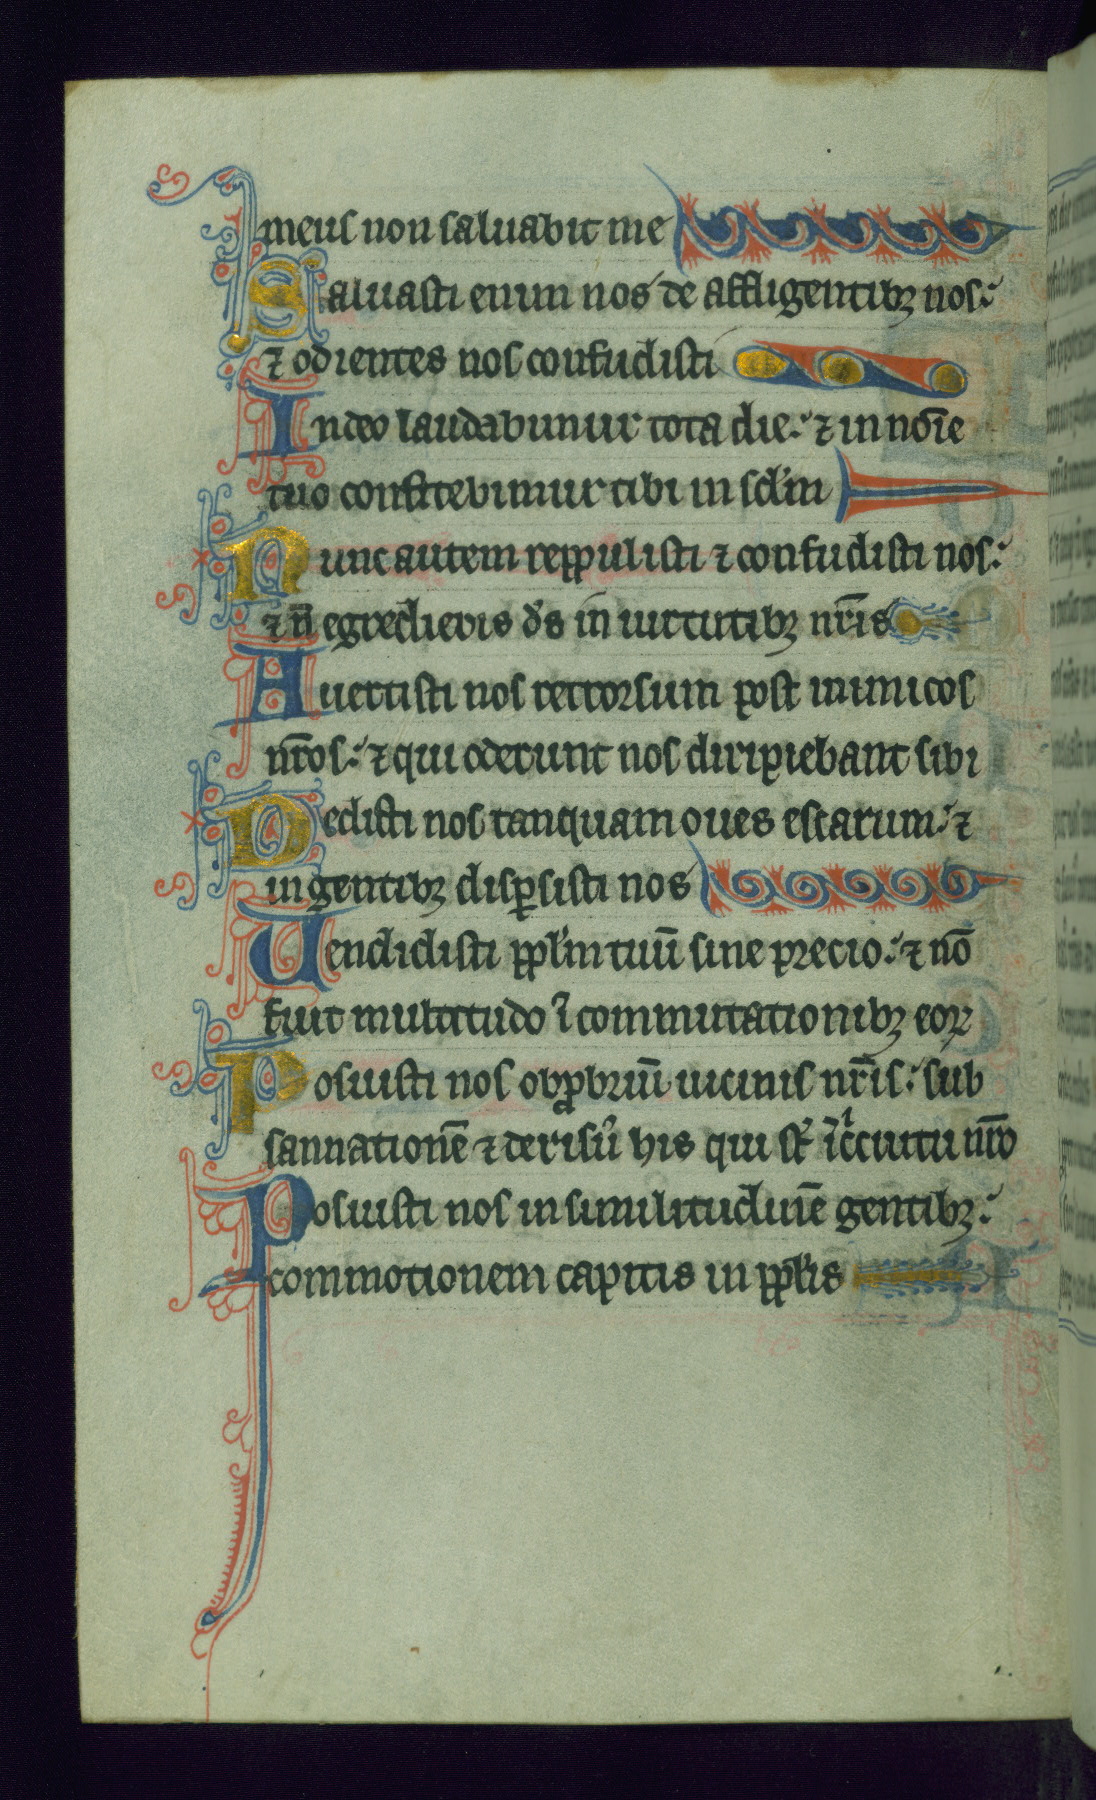 meus non saluabit me
Saluasti enim nos de affligentibꝫ nos:
⁊ odientes nos confudisti
In deo laudabimur tota die: ⁊ in noīe
tuo confitebimur tibi in scl̄m
Nunc autem reppulisti ⁊ confudisti nos:
⁊ n̄ egredieris ds̄ in uirtutibꝫ nr̄is
Auertisti nos retrorsum post inimicos
nr̄os: ⁊ qui oderunt nos diripiebant sibi
Dedisti nos tanquam oues escarum: ⁊
in gentibꝫ disꝑsisti nos
Uendidisti ppl̄m tuū sine precio: ⁊ nō
fuit multitudo ī commutationibꝫ eoꝝ
Posuisti nos obꝓbriū uicinis nr̄is: sub
sannationē ⁊ derisū his qui st̄ ī circuitu nr̄o
Posuisti nos in similitudinē gentibꝫ:
commotionem capitis in ppl̄is